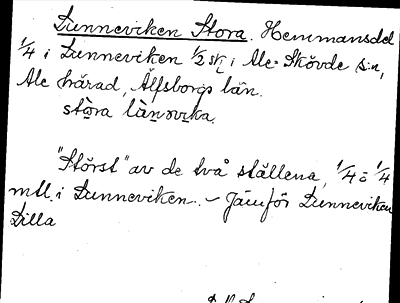 Lunneviken Stora. Hemmansdel
1/4 i Lunneviken 1/2 sk i Ale-Skövde s:n,
Ale härad, Älfsborgs län.
stòra lànovika.
"Störst" av de två ställena, 1/4 o 1/4
mtl. i Lunneviken. – Jämför Lunneviken
Lilla